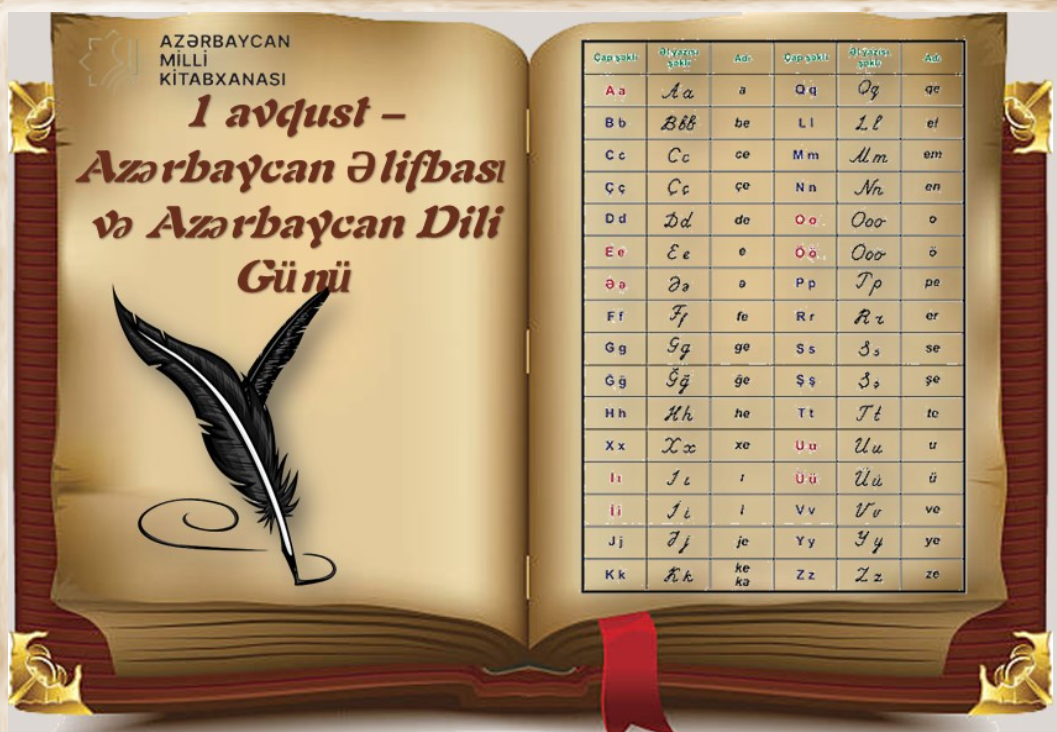 AZƏRBAYCAN
MİLLİ
KİTABXANASI
1 avqust –
Azərbaycan Əlifbası
və Azərbaycan Dili
Günü
Çap şəkli Əl yazısı şəkli Adı Çap şəkli Əl yazısı şəkli Adı
A a A a a Q q Q q qe
B b B b b be L l L l el
C c C c ce M m M m em
Ç ç Ç ç çe N n N n en
D d D d de O o O o o o
E e E e e Ö ö Ö ö ö ö
Ə ə Ə ə ə P p P p pe
F f F f fe R r R r er
G g G g ge S s S s se
Ğ ğ Ğ ğ ğe Ş ş Ş ş şe
H h H h he T t T t te
X x X x xe U u U u u
I ı I ı ı Ü ü Ü ü ü
İ i İ i i V v V v ve
J j J j je Y y Y y ye
K k K k ke ka Z z Z z ze